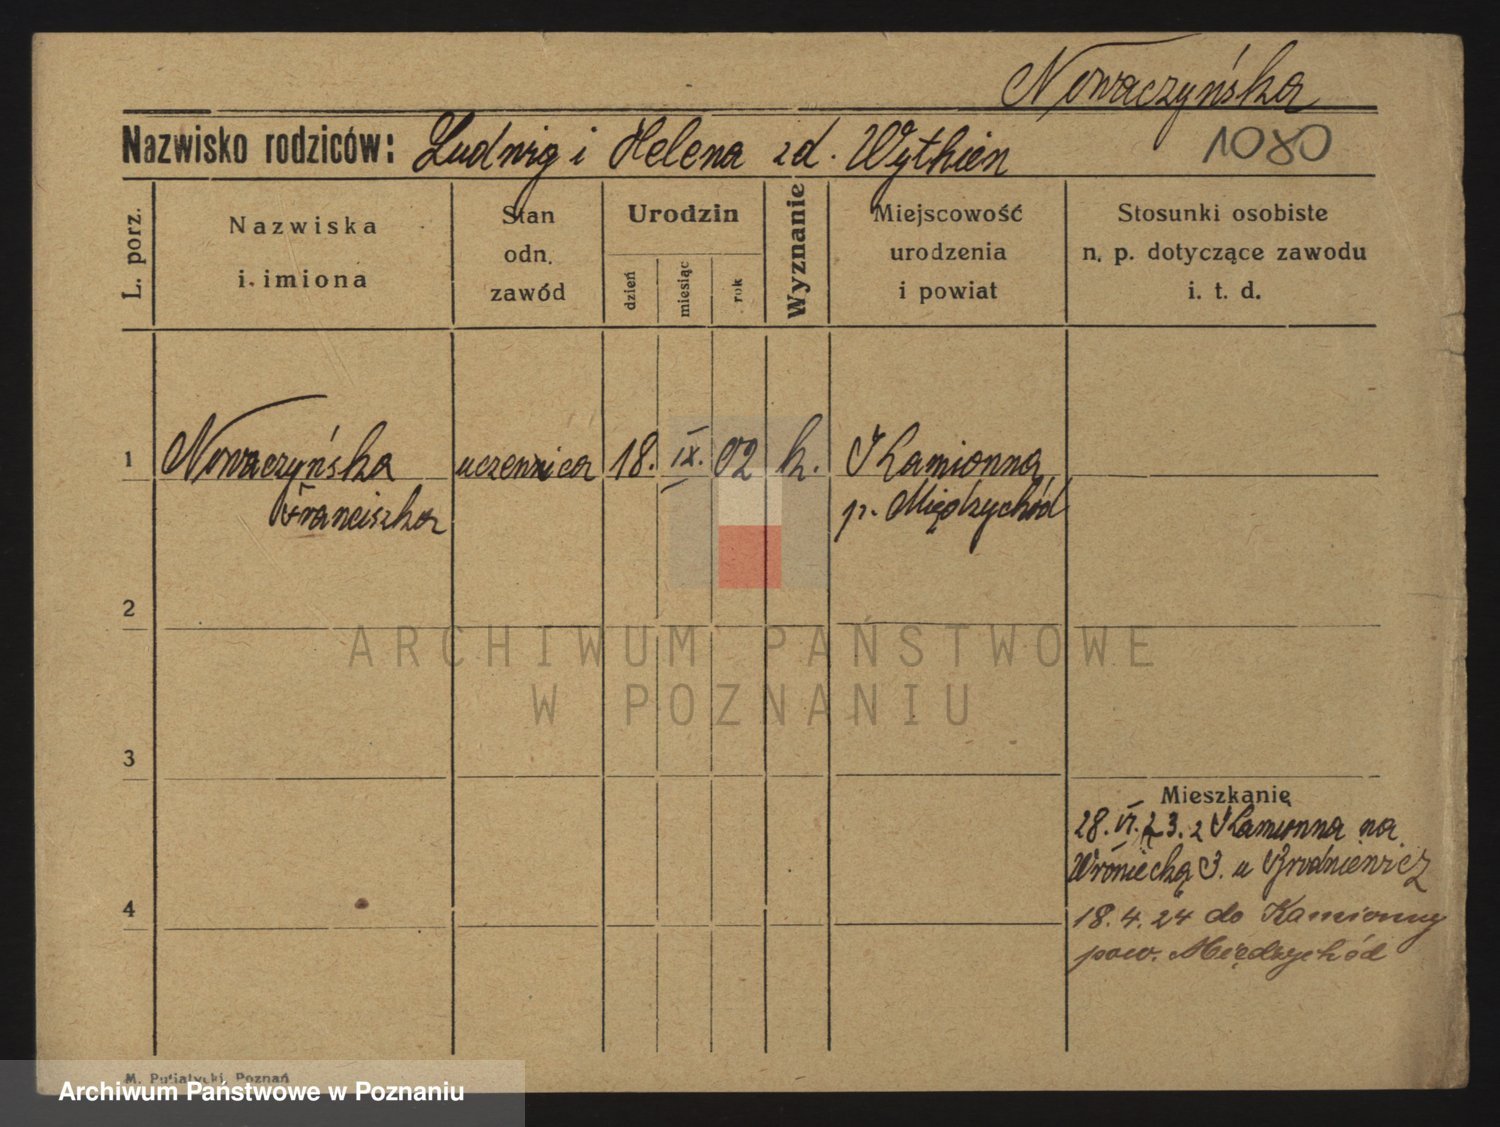 Nowaczyńska
Nazwisko rodziców: Ludwig i Helena zd. Wythien
1080
L. porz.
Nazwiska
i imiona
Stan
odn.
zawód
Urodzin
dzień
miesiąc
rok
Wyznanie
Miejscowość
urodzenia
i powiat
Stosunki osobiste
n. p. dotyczące zawodu
i. t. d.
1 Nowaczyńska uczennica 18. IX. 02 k. Kamionna
Franciszka p. Międzychód
2
ARCHIWUM PAŃSTWOWE
W POZNANIU
3
Mieszkanie
28. VI. 23. z Kamionna na
Wroniecką 3. u
4
18. 4. 24 do Kamionny
pow. Międzychód
M. Putiatycki, Poznań
Archiwum Państwowe w Poznaniu